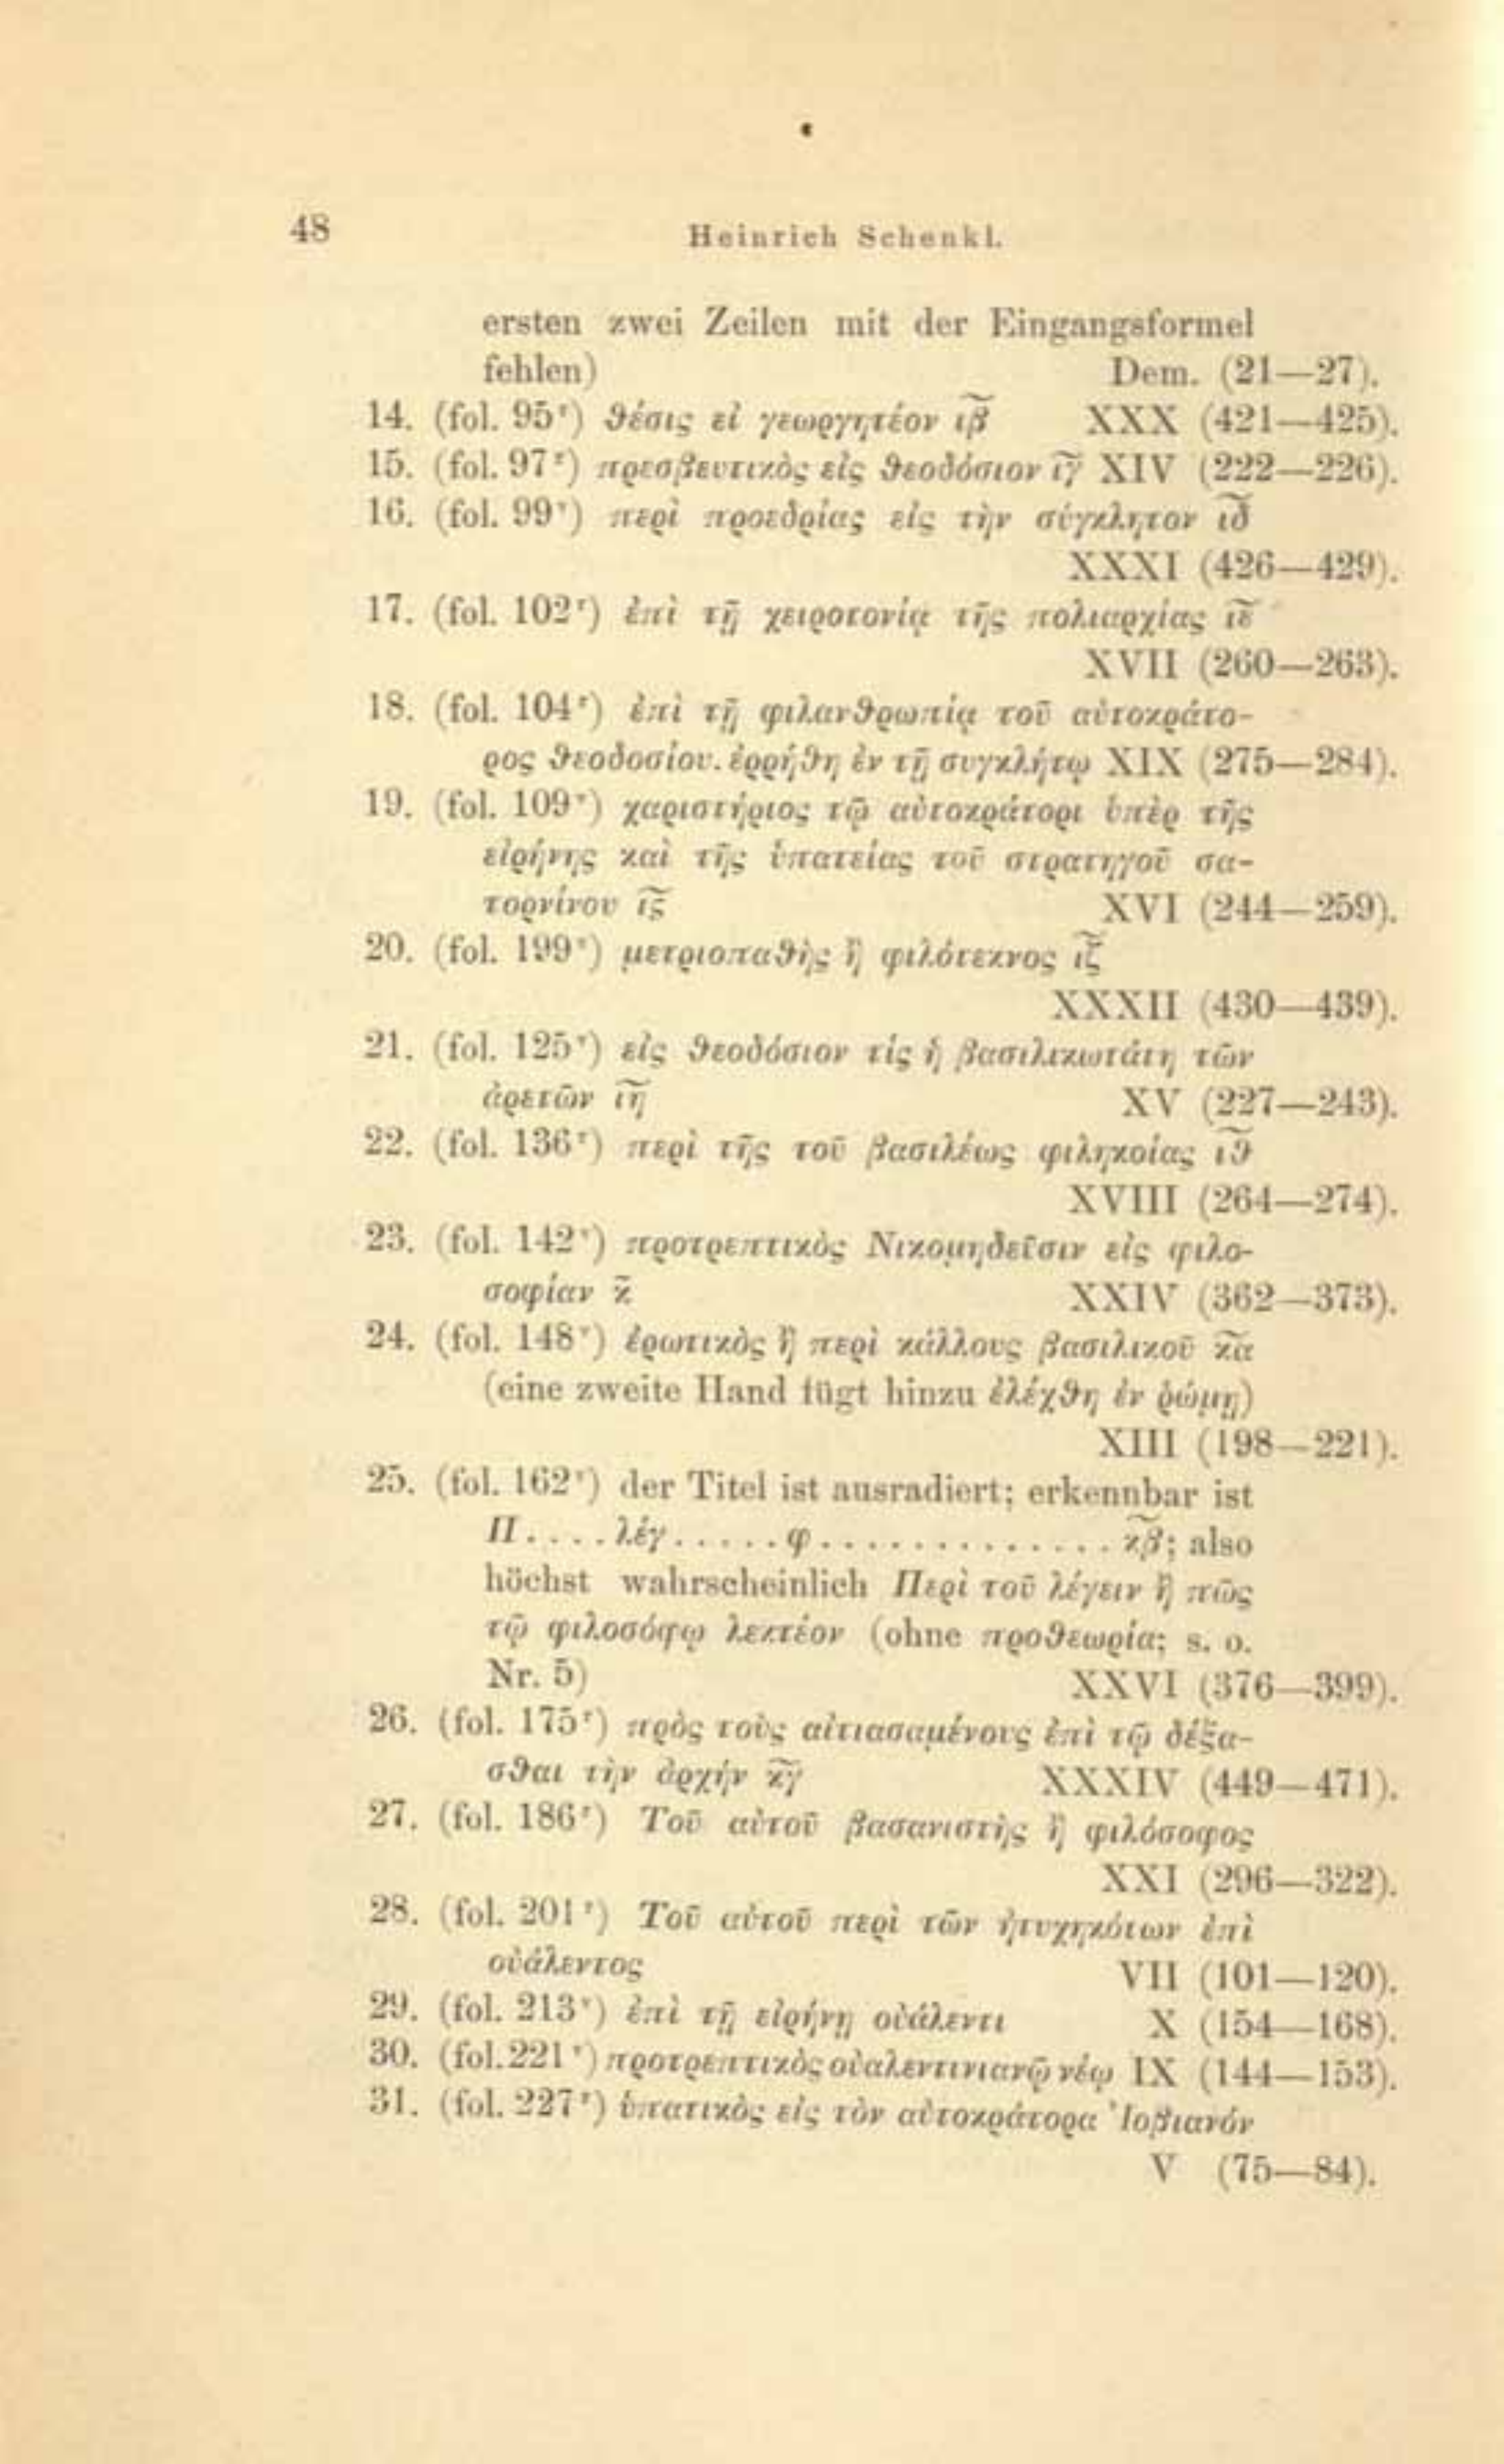 48
Heinrich Schenkl.
ersten zwei Zeilen mit der Eingangsformel
fehlen) Dem. (21—27).
14. (fol. 95ʳ) θέσις εἰ γεωργητέον ῖβ XXX (421—425).
15. (fol. 97ʳ) πρεσβευτικὸς εἰς θεοδόσιον ῖγ XIV (222—226).
16. (fol. 99ᵛ) περὶ προεδρίας εἰς τὴν σύγκλητον ῖδ
XXXI (426—429).
17. (fol. 102ʳ) ἐπὶ τῇ χειροτονίᾳ τῆς πολιαρχίας ῖε
XVII (260—263).
18. (fol. 104ʳ) ἐπὶ τῇ φιλανθρωπίᾳ τοῦ αὐτοκράτο-
ρος θεοδοσίου. ἐρρήθη ἐν τῇ συγκλήτῳ XIX (275—284).
19. (fol. 109ᵛ) χαριστήριος τῷ αὐτοκράτορι ὑπὲρ τῆς
εἰρήνης καὶ τῆς ὑπατείας τοῦ στρατηγοῦ σα-
τορνίνου ῖς XVI (244—259).
20. (fol. 199ᵛ) μετριοπαθὴς ἢ φιλότεκνος ῖζ
XXXII (430—439).
21. (fol. 125ᵛ) εἰς θεοδόσιον τίς ἡ βασιλικωτάτη τῶν
ἀρετῶν ῖη XV (227—243).
22. (fol. 136ʳ) περὶ τῆς τοῦ βασιλέως φιληκοίας ῖθ
XVIII (264—274).
23. (fol. 142ᵛ) προτρεπτικὸς Νικομηδεῖσιν εἰς φιλο-
σοφίαν κ͂ XXIV (362—373).
24. (fol. 148ᵛ) ἐρωτικὸς ἢ περὶ κάλλους βασιλικοῦ κ͂α
(eine zweite Hand fügt hinzu ἐλέχθη ἐν ῥώμῃ)
XIII (198—221).
25. (fol. 162ᵛ) der Titel ist ausradiert; erkennbar ist
Π....λέγ.....φ.............κ͂β; also
höchst wahrscheinlich Περὶ τοῦ λέγειν ἢ πῶς
τῷ φιλοσόφῳ λεκτέον (ohne προθεωρία; s. o.
Nr. 5) XXVI (376—399).
26. (fol. 175ʳ) πρὸς τοὺς αἰτιασαμένους ἐπὶ τῷ δέξα-
σθαι τὴν ἀρχήν κ͂γ XXXIV (449—471).
27. (fol. 186ʳ) Τοῦ αὐτοῦ βασανιστὴς ἢ φιλόσοφος
XXI (296—322).
28. (fol. 201ʳ) Τοῦ αὐτοῦ περὶ τῶν ἠτυχηκότων ἐπὶ
οὐάλεντος VII (101—120).
29. (fol. 213ᵛ) ἐπὶ τῇ εἰρήνῃ οὐάλεντι X (154—168).
30. (fol. 221ᵛ) προτρεπτικὸς οὐαλεντινιανῷ νέῳ IX (144—153).
31. (fol. 227ʳ) ὑπατικὸς εἰς τὸν αὐτοκράτορα Ἰοβιανόν
V (75—84).